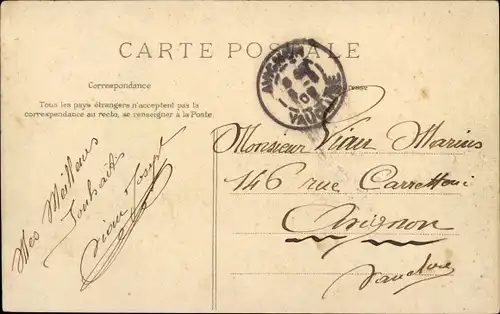 CARTE POSTALE
AVIGNON
VAUCLUSE
Correspondance
Tous les pays étrangers n'acceptent pas la
correspondance au recto, se renseigner à la Poste.
Mes Meilleurs
Souhaits
Viau Joseph
Monsieur Viau Marius
146 rue Carretterie
Avignon
Vaucluse